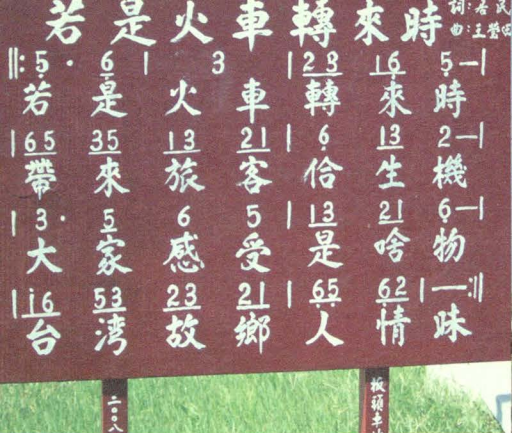 若是火車轉來時
詞:
曲:王
‖: 5· 6 | 3 | 23 16 5— |
若是火車轉來時
| 65 35 13 21 | 6 13 2— |
帶來旅客佮生機
| 3· 5 6 5 | 13 21 6— |
大家感受是啥物
| i6 53 23 21 | 65 62 | — :‖
台湾故鄉人情味
二〇〇八
板頭車